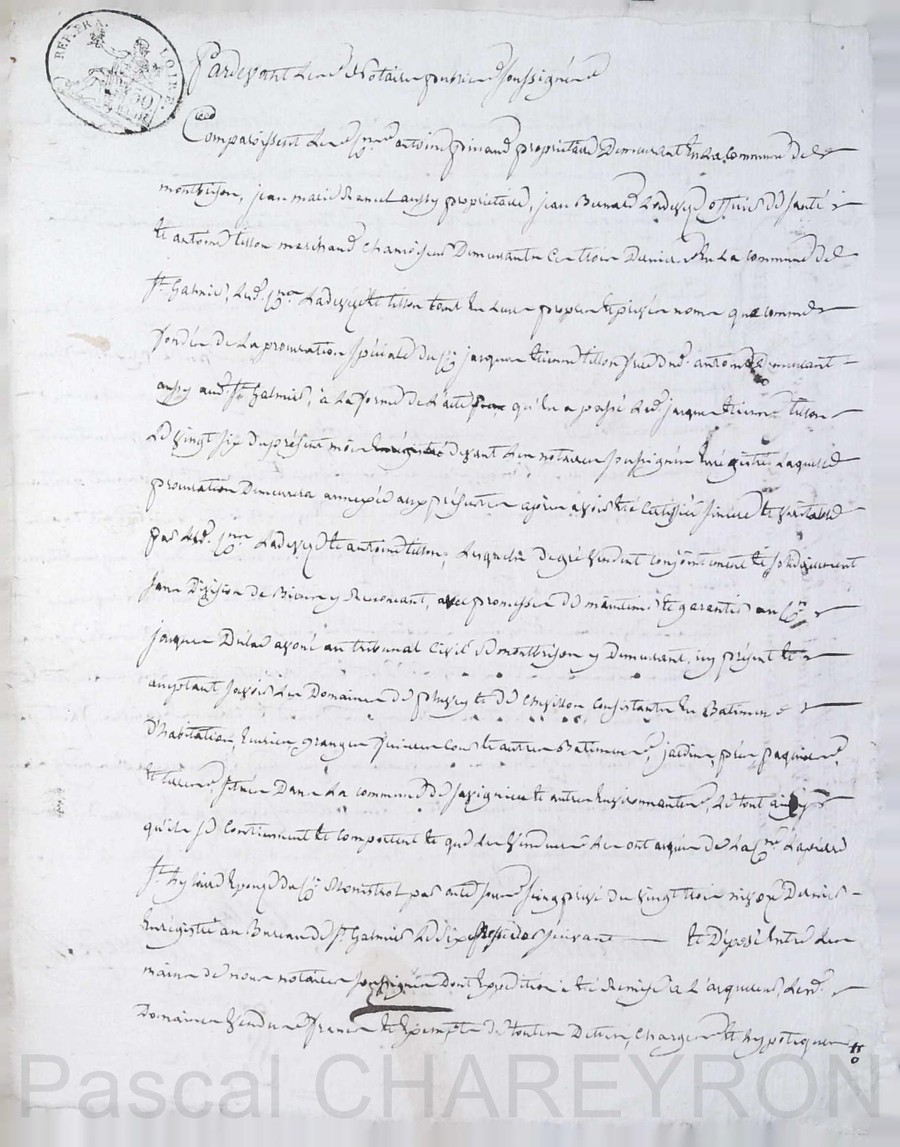 REP. FRA. LOIRE
50
Pardevant Les Notaires publics soussignés
Comparoissent Les cens antoine pinaud propriétaire Demeurant En La commune de
montbrison, jean marie ramel aussy propriétaire, jean Bernard Ladevez officier De santé
Et antoine tisson marchand chamoiseur Demeurants Ces trois Derniers En La commune de
St Galmier, Led. cen Ladevez Et tisson tant En Leurs propres Et privés noms que comme
fondés de La procuration spéciale du cen jacques Etienne tisson demeurant
aussy aud. St Galmier, à La forme de L'acte qu'En a passé Led. jacques Etienne tisson
Le vingt six du présent mois devant Les notaires soussignés Enregistré Laquelle
procuration Demeurera annexée aux présentes après avoir été Certifiée sincère Et véritable
par Led. cen Ladevez Et antoine tisson, Lesquels de gré vendent conjointement Et solidairement
sans Division de Biens y Renonçant, avec promesse De maintenir Et garantir au cen
jacques Dulac avoué au tribunal Civil De montbrison y Demeurant, icy présent Et
acceptant savoir Les Domaines De Et De Consistants En Batimens
D'habitation, Ecuries, granges, Cour Et autres Batimens, jardins, prés, paquiers,
Et terres, situés Dans La commune De Savignieu Et autres Environnantes, Le tout ainsy
qu'ils se Contiennent Et comportent Et que Les vendeurs Les ont acquis de La cne
St hylaire Epouse du cen par acte sous seing privé du vingt trois Dernier
Enregistré au Bureau de St Galmier Le Dix suivant Et Déposé Entre Les
mains de nous notaires soussignés Dont Expédition a Eté Remise à L'acquereur, Lesd.
Domaines vendus francs Et Exempts de toutes Dettes, charges Et hypoteques
Pascal CHAREYRON